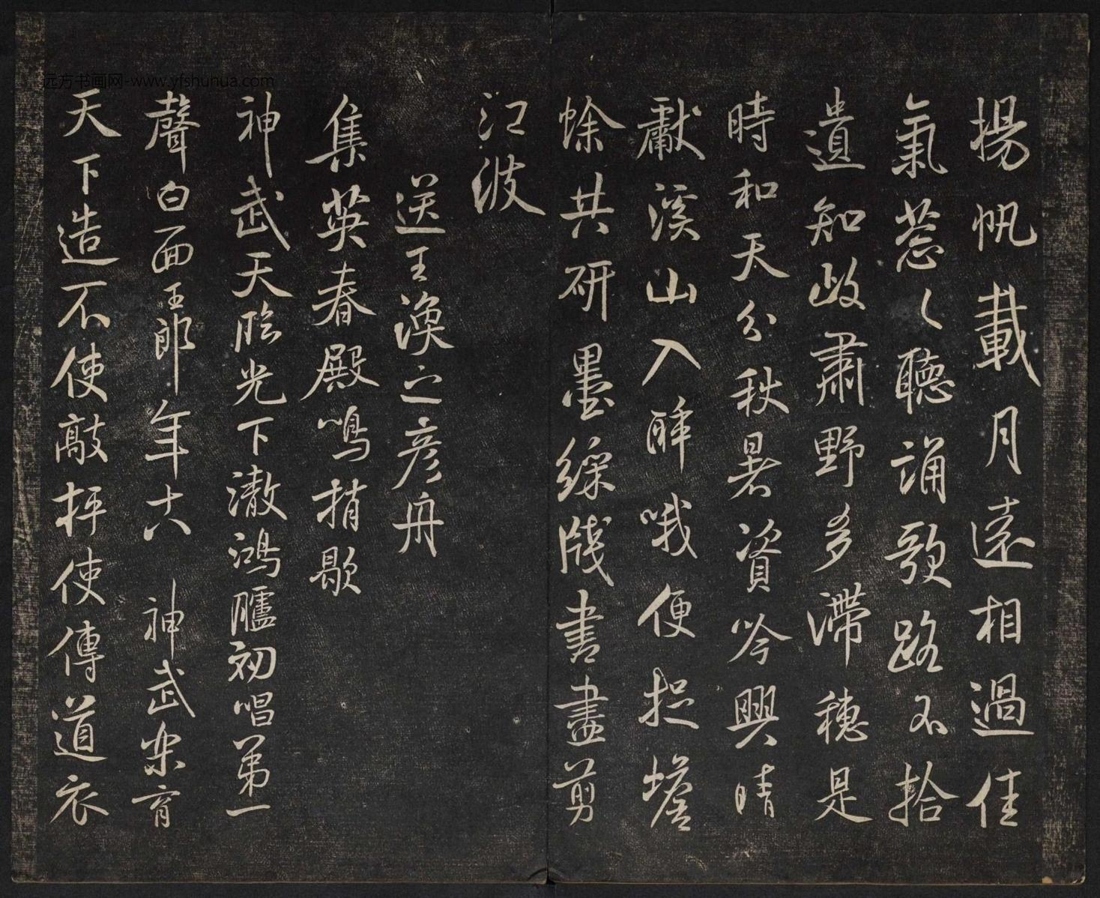 远方书画网-www.yfshunua.com
揚帆載月遠相過佳
氣葱々聽誦歌路不拾
遺知政肅野多滯穗是
時和天分秋暑資吟興晴
獻溪山入醉哦便捉蟾
蜍共研墨綵牋書盡剪
江波
送王渙之彥舟
集英春殿鳴捎歇
神武天臨光下澈鴻臚初唱第一
聲白面王郎年十八 神武樂育
天下造不使敲枰使傳道衣